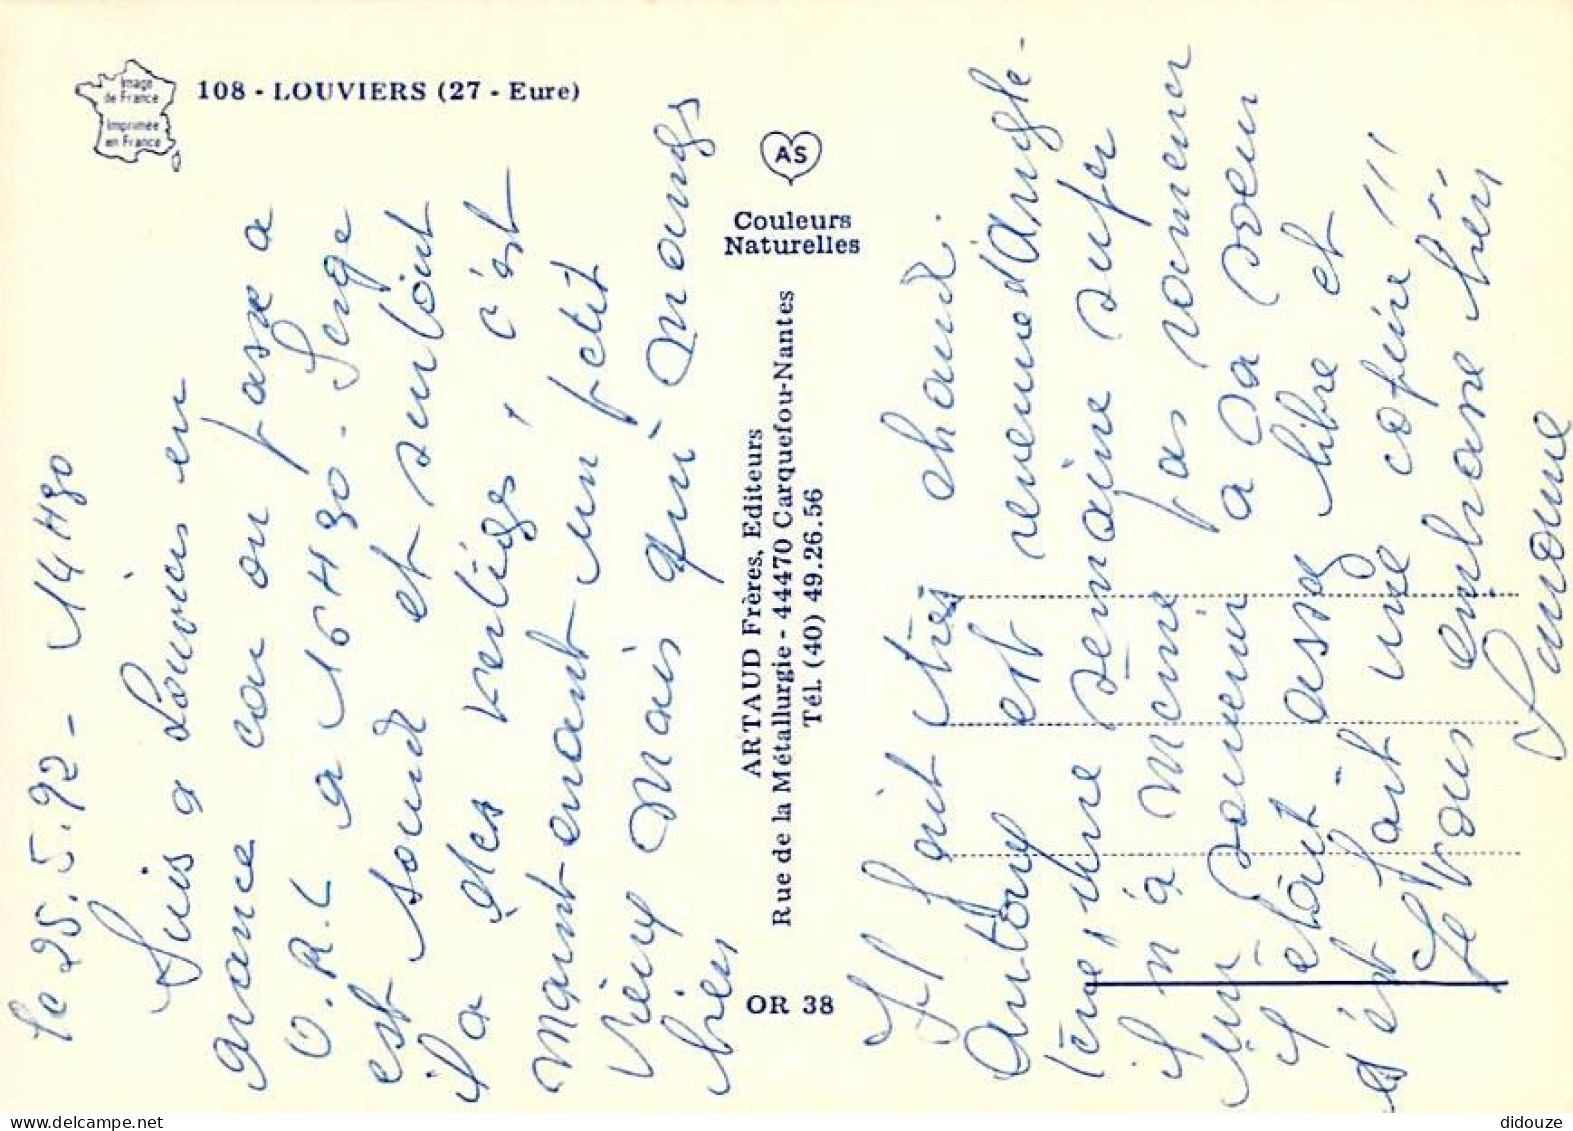 Image
de France
Imprimée
en France
108 - LOUVIERS (27 - Eure)
AS
Couleurs
Naturelles
ARTAUD Frères, Editeurs
Rue de la Métallurgie - 44470 Carquefou-Nantes
Tél. (40) 49.26.56
OR 38
le 25.5.92 - 14H30
Suis a Louviers en
avance car on passe a
O.R.L a 16H30. Serge
est sourd et surtout
il a des vertiges, c'est
maintenant un petit
vieux mais qui mange
bien
Il fait très chaud.
Antony est revenu d'Angle-
terre, une semaine super
il n'a même pas ramener
un souvenir a sa sœur
il étant assez libre et
s'est fait une copine !!!
Je vous embrasse bien
didouze